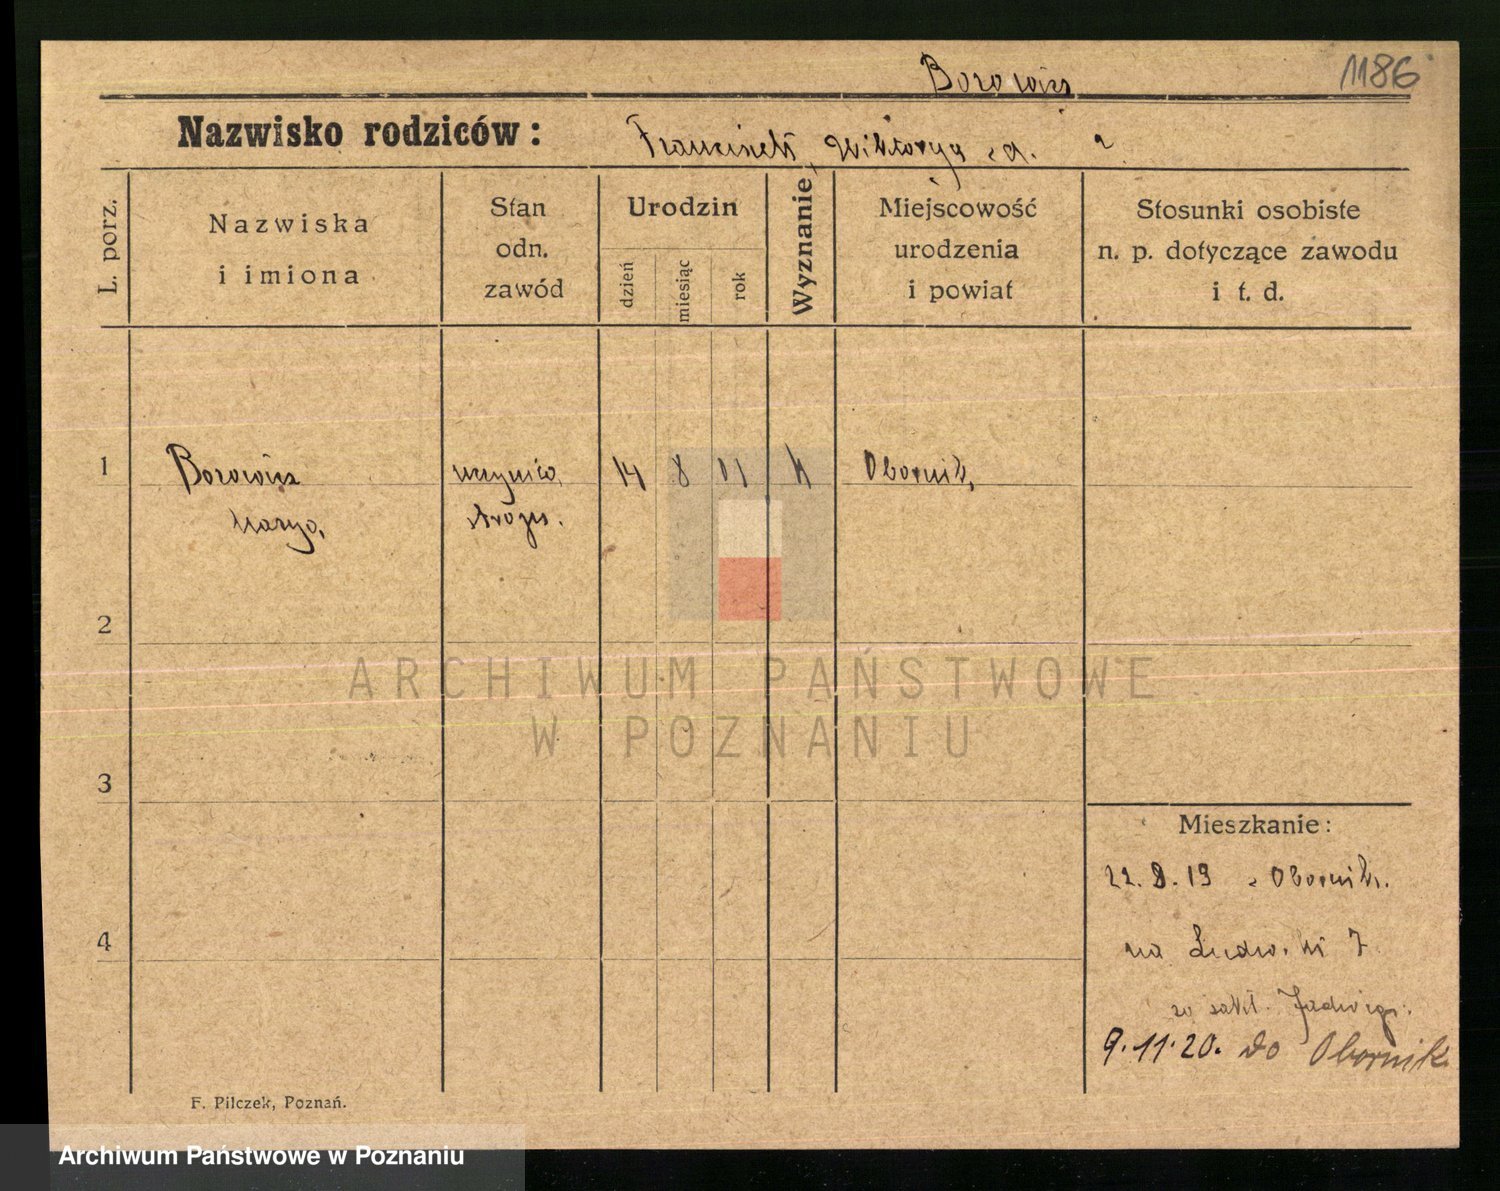 Borowicz
1186
Nazwisko rodziców: Franciszek, Wiktorya
L. porz.
Nazwiska
i imiona
Stan
odn.
zawód
Urodzin
dzień
miesiąc
rok
Wyznanie
Miejscowość
urodzenia
i powiat
Stosunki osobiste
n. p. dotyczące zawodu
i t. d.
1 Borowicz 14 8 01 k Obornik
Marya
2
3
4
Mieszkanie:
22.8.19 z Obornik.
na
Jadwigi
9.11.20. do Obornik
F. Pilczek, Poznań.
ARCHIWUM PAŃSTWOWE
W POZNANIU
Archiwum Państwowe w Poznaniu